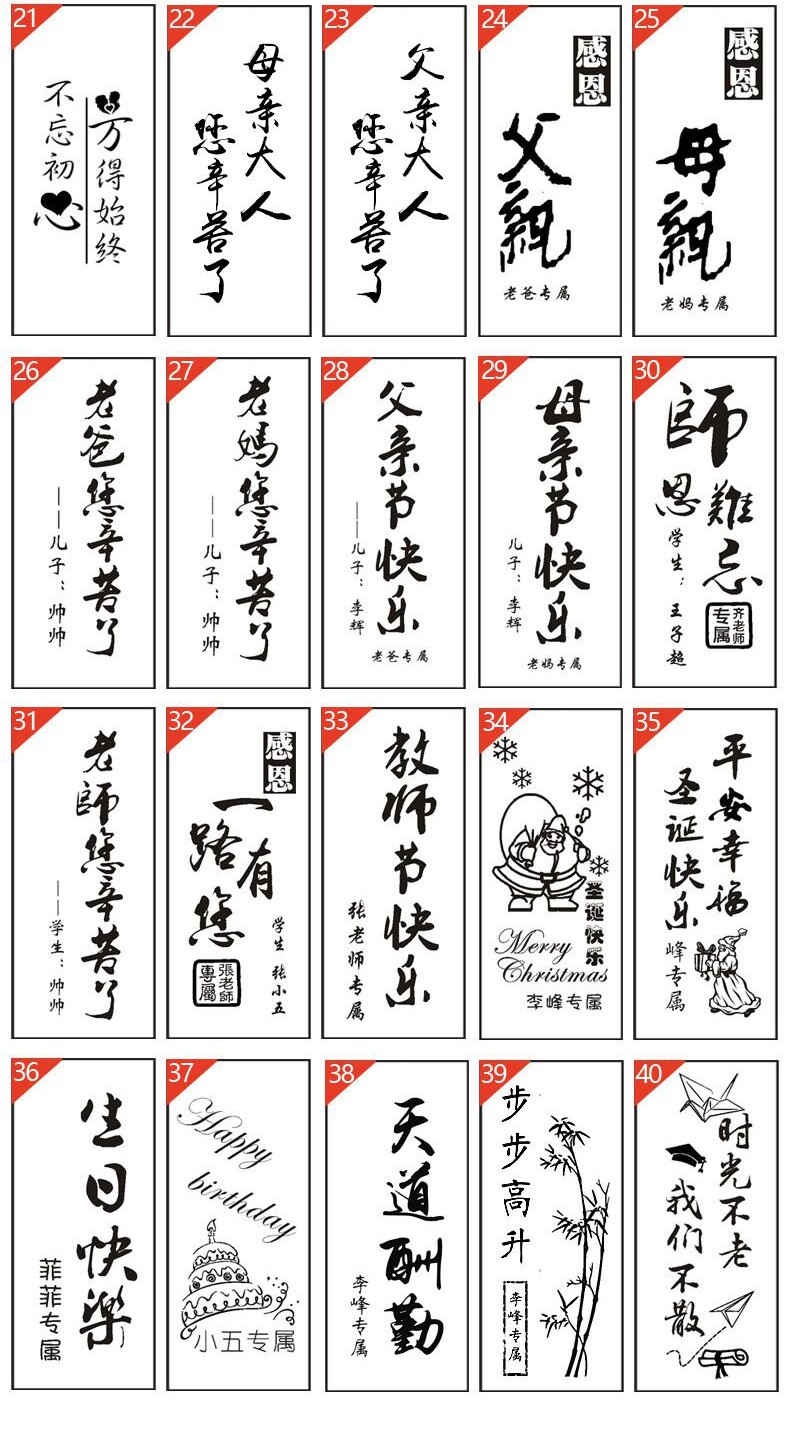 21
不忘初心
方得始终
22
母亲大人
您辛苦了
23
父亲大人
您辛苦了
24
感恩
父親
老爸专属
25
感恩
母親
老妈专属
26
老爸您辛苦了
——儿子：帅帅
27
老媽您辛苦了
——儿子：帅帅
28
父亲节快乐
——儿子：李辉
老爸专属
29
母亲节快乐
儿子：李辉
老妈专属
30
師恩難忘
学生：王子超
齐老师
专属
31
老師您辛苦了
——学生：帅帅
32
感恩
一路有您
学生 张小五
張老師
專屬
33
教师节快乐
张老师专属
34
圣诞快乐
Merry
Christmas
李峰专属
35
平安幸福
圣诞快乐
峰专属
36
生日快樂
菲菲专属
37
Happy
birthday
小五专属
38
天道酬勤
李峰专属
39
步步高升
李峰专属
40
时光不老
我们不散